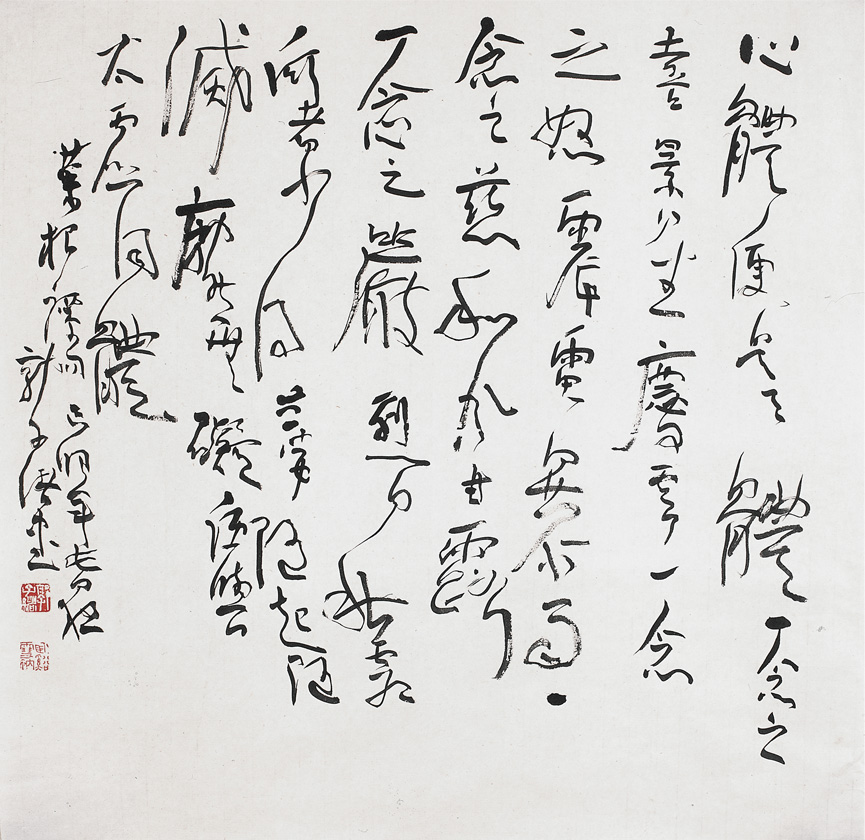 心體便是天體一念之
喜景星慶雲一念
之怒震雷暴雨一
念之慈和風甘露
一念之嚴烈日秋霜
何者少得只要隨起隨
滅廓然無礙便與
太虛同體
菜根譚 己卯年
郭子緒書